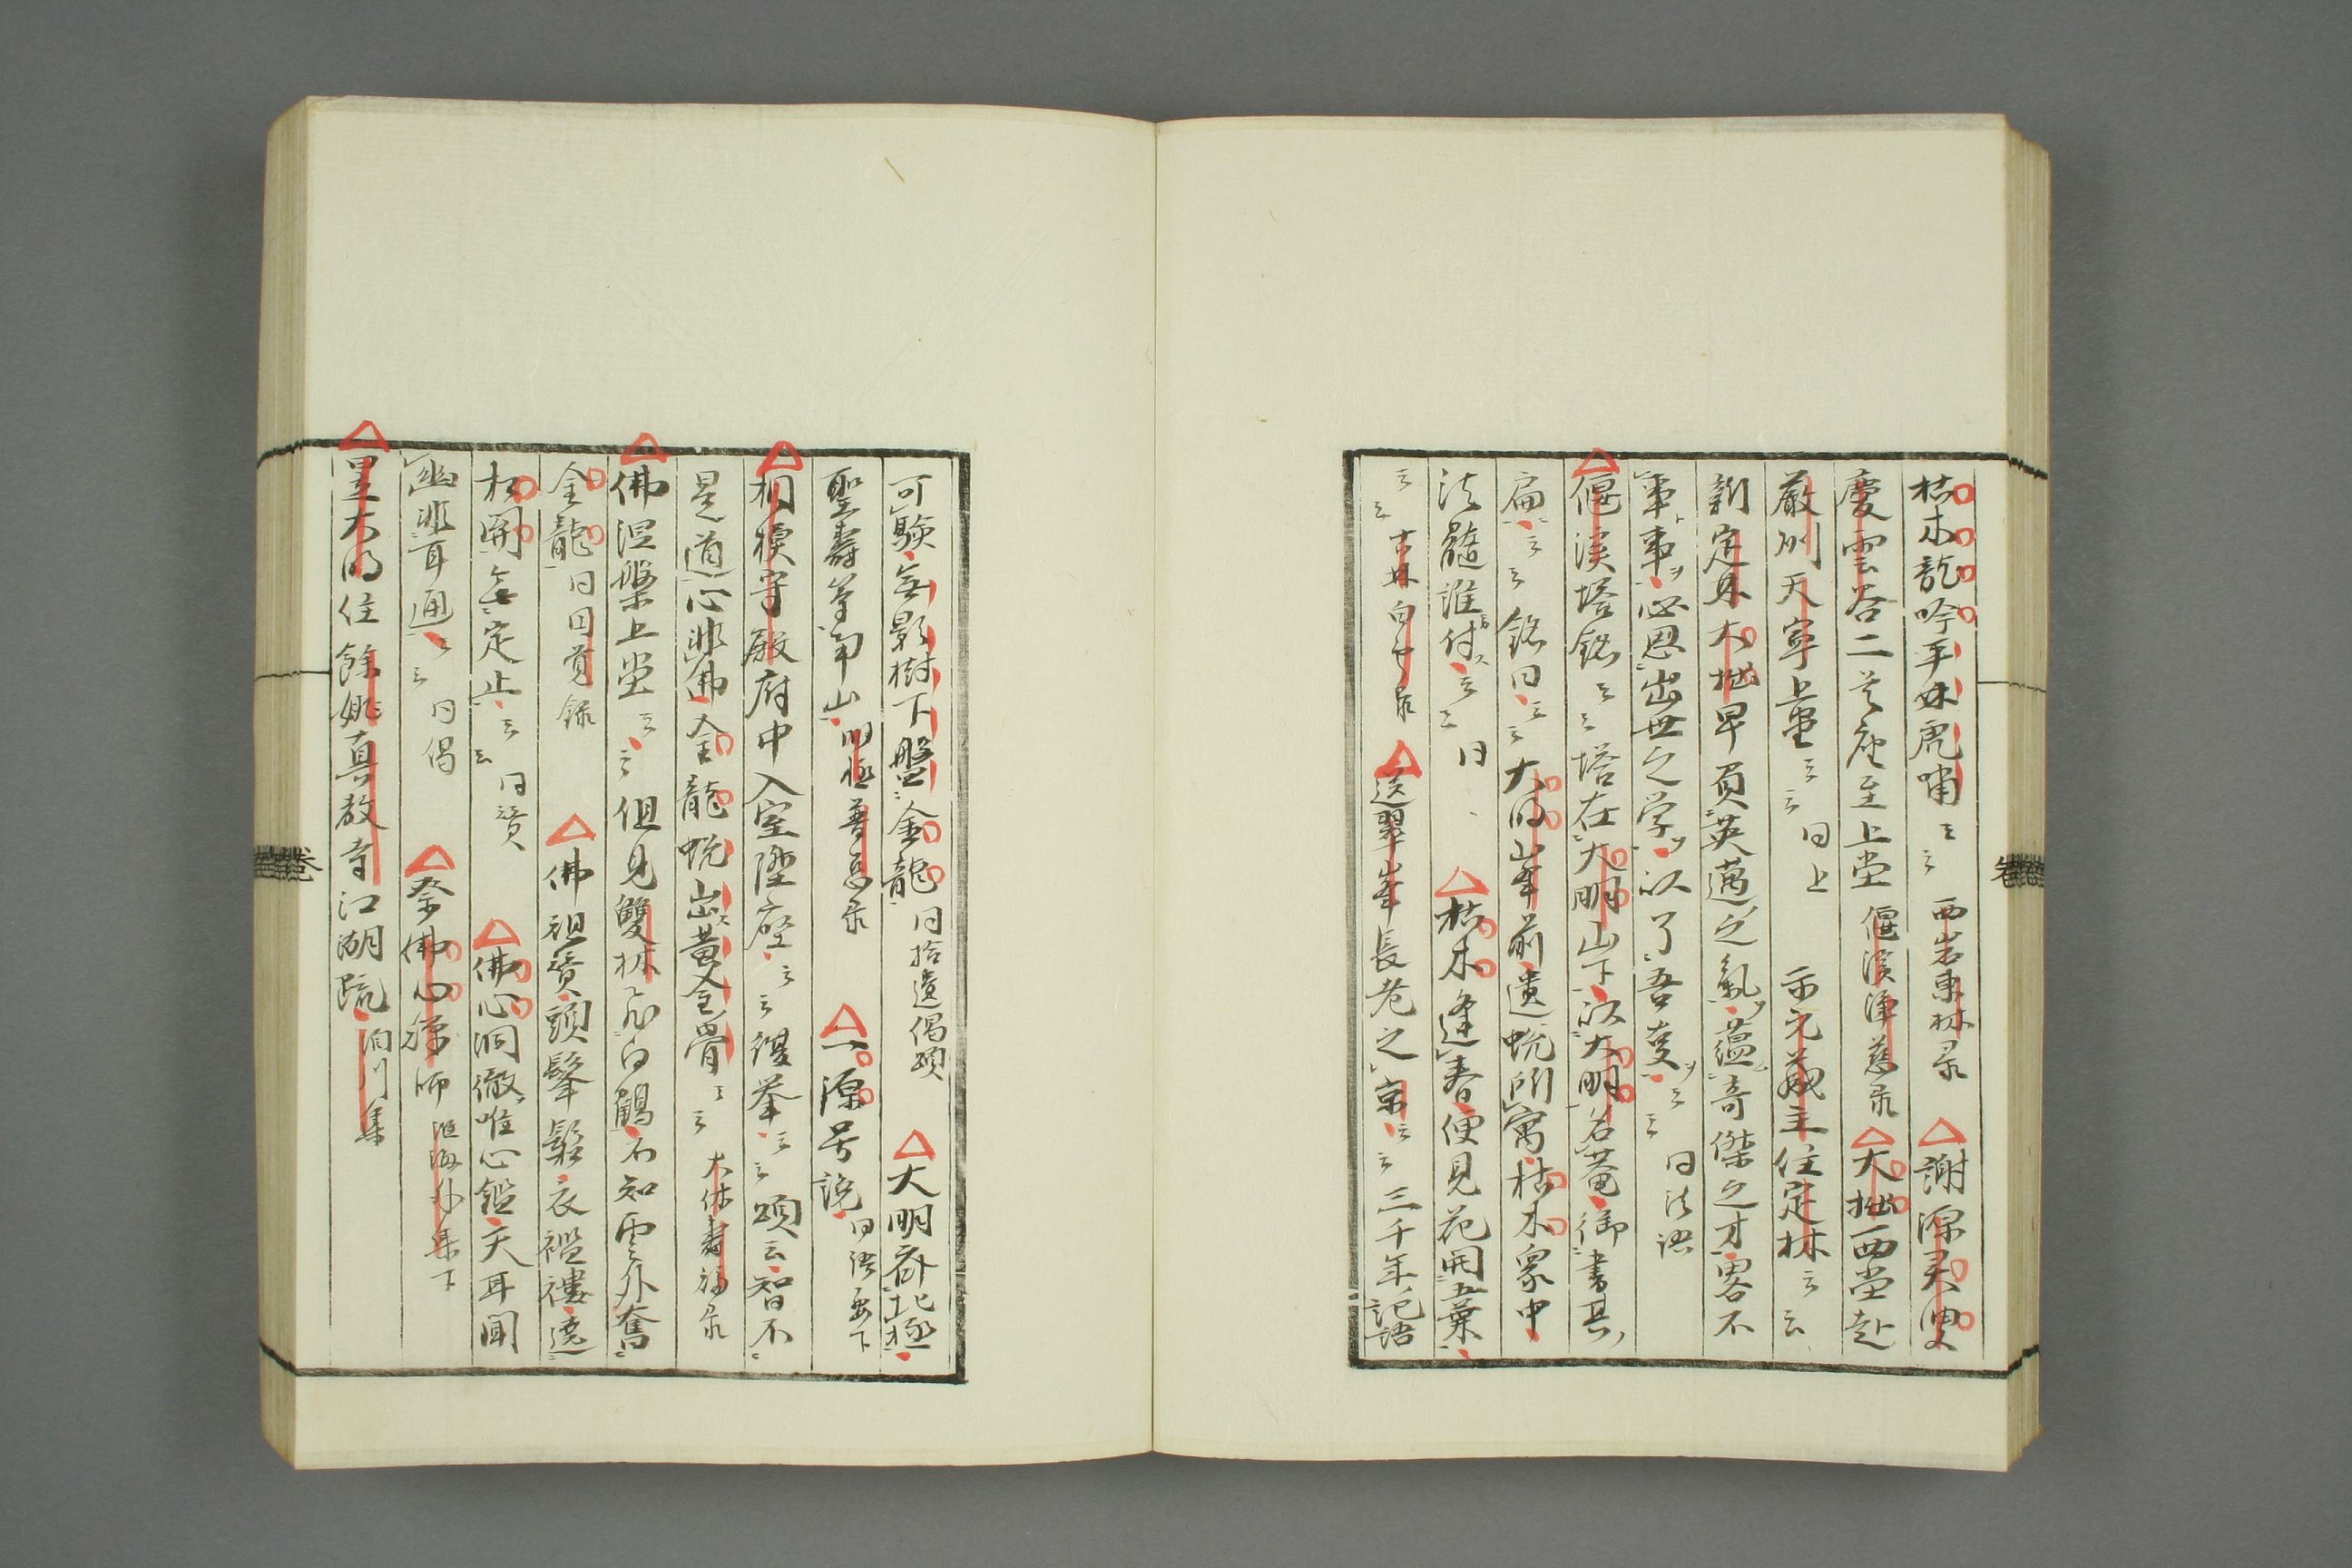 枯木龍吟乎林虎嘯云云 西岩東林录 謝源灵叟
慶雲谷二首座至上堂 偃溪淨慈录 大拙西堂赴
嚴州天寧上堂云云 同上 示元 主住定林云云
新定具大拙早負英邁之氣蘊奇傑之才畧不
事事必思出世之学以了吾変云云 同法語
偃溪塔銘云云塔在大明山下以大明名菴御書其
扁云云銘曰云云大明山峯前遺蛻所寓枯木衆中
法髓誰付云云 同 枯木逢春便見花開五葉
云云 古林 白 录 送翠峯長老之京云云三千年記語
可驗無影樹下盤金龍 同拾遺偈頌 大明齊北極
聖壽等南山 明極普 录 一源号說 同語要下
相模守殿府中入室陞座云云復挙云云頌云智不
是道心非佛金龍蛻出黃金骨云云 大休壽福录
佛涅槃上堂云云但見雙林 白鶴不知雲外奮
金龍 同円覚録 佛祖賛頭髼鬆衣襤褸遶
杖開無定止云云 同賛 佛心洞徹唯心鑑天耳聞
幽非耳通云云 同偈 祭佛心 師 海外集下
里大明住餘姚真教寺江湖疏 洞川集
卷